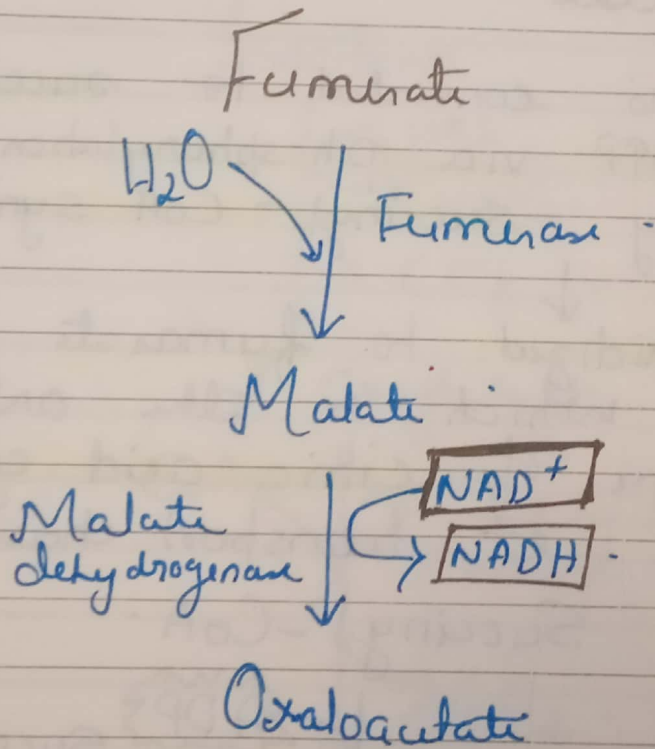 Fumerate
H₂O
Fumerase
Malate
NAD⁺
Malate
dehydrogenase
NADH
Oxaloacetate